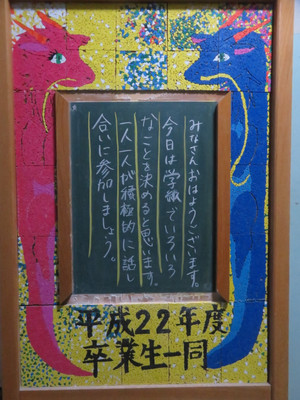 みなさんおはようございます。
今日は学級でいろいろ
なことを決めると思います。
一人一人が積極的に話し
合いに参加しましょう。
平成22年度
卒業生一同